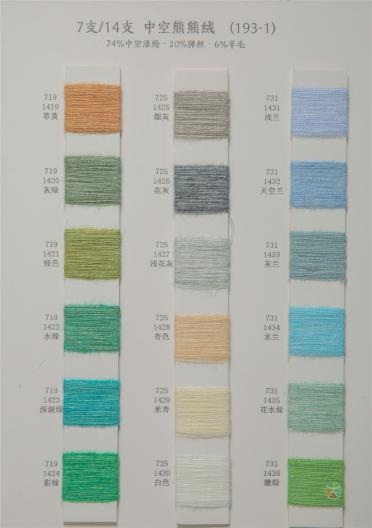 7支/14支 中空熊熊绒 (193-1)
74%中空涤纶·20%弹丝·6%羊毛
719
1419
草黄
719
1420
灰绿
719
1421
蜂色
719
1422
水绿
719
1423
深湖绿
719
1424
彩绿
725
1425
烟灰
725
1426
花灰
725
1427
浅花灰
725
1428
杏色
725
1429
米杏
725
1430
白色
731
1431
浅兰
731
1432
天空兰
731
1433
灰兰
731
1434
水兰
731
1435
花水绿
731
1436
嫩绿